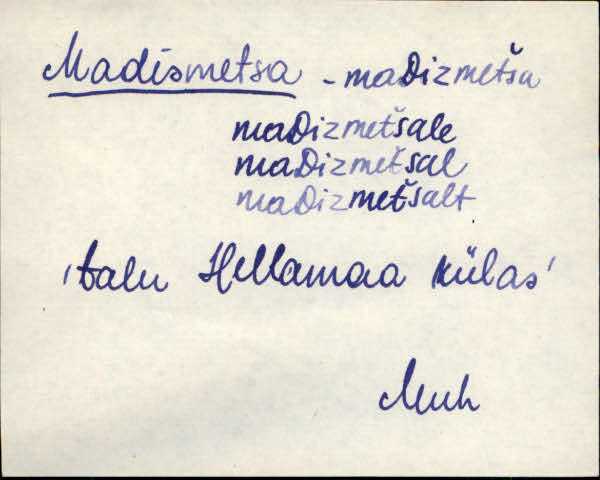 Madismetsa - maDizmetša
maDizmetšale
maDizmetšal
maDizmetšalt
'talu Hellamaa külas'
Muh